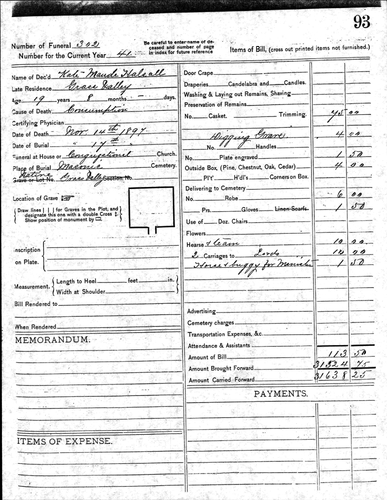 93
Number of Funeral 302
Number for the Current Year 41
Be careful to enter name of deceased and number of page in index for future reference
Items of Bill, (cross out printed items not furnished.)
Name of Dec'd Kate Maude Halsall
Late Residence Grass Valley
Age 19 years 8 months days
Cause of Death Consumption
Certifying Physician
Date of Death Nov. 14th 1897
Date of Burial " 17th "
Funeral at House or Congregational Church.
Place of Burial Masonic Cemetery.
Native
Grave or Lot No. Grass Valley Section No.
Location of Grave
Draw lines for Graves in the Plot, and designate this one with a double Cross Show position of monument by
Inscription on Plate.
Measurement. Length to Heel feet in.
Width at Shoulder
Bill Rendered to
When Rendered
MEMORANDUM.
ITEMS OF EXPENSE.
Door Crape
Draperies Candelabra and Candles.
Washing & Laying out Remains, Shaving
Preservation of Remains
No. Casket. Trimming. 75 00
Digging Grave 4 00
No. Handles
Plate engraved 1 50
Outside Box, (Pine, Chestnut, Oak, Cedar) 4 00
Corners on Box.
Delivering to Cemetery
No. Robe 6 00
Prs. Gloves Linen Scarfs 1 50
Use of Doz. Chairs
Flowers
Hearse & team 10 00
2 Carriages to Lords
Horse & buggy for Minister 1 50
Advertising
Cemetery charges
Transportation Expenses, &c.
Attendance & Assistants
Amount of Bill 113 50
Amount Brought Forward 31524 75
Amount Carried Forward 31638 25
PAYMENTS.